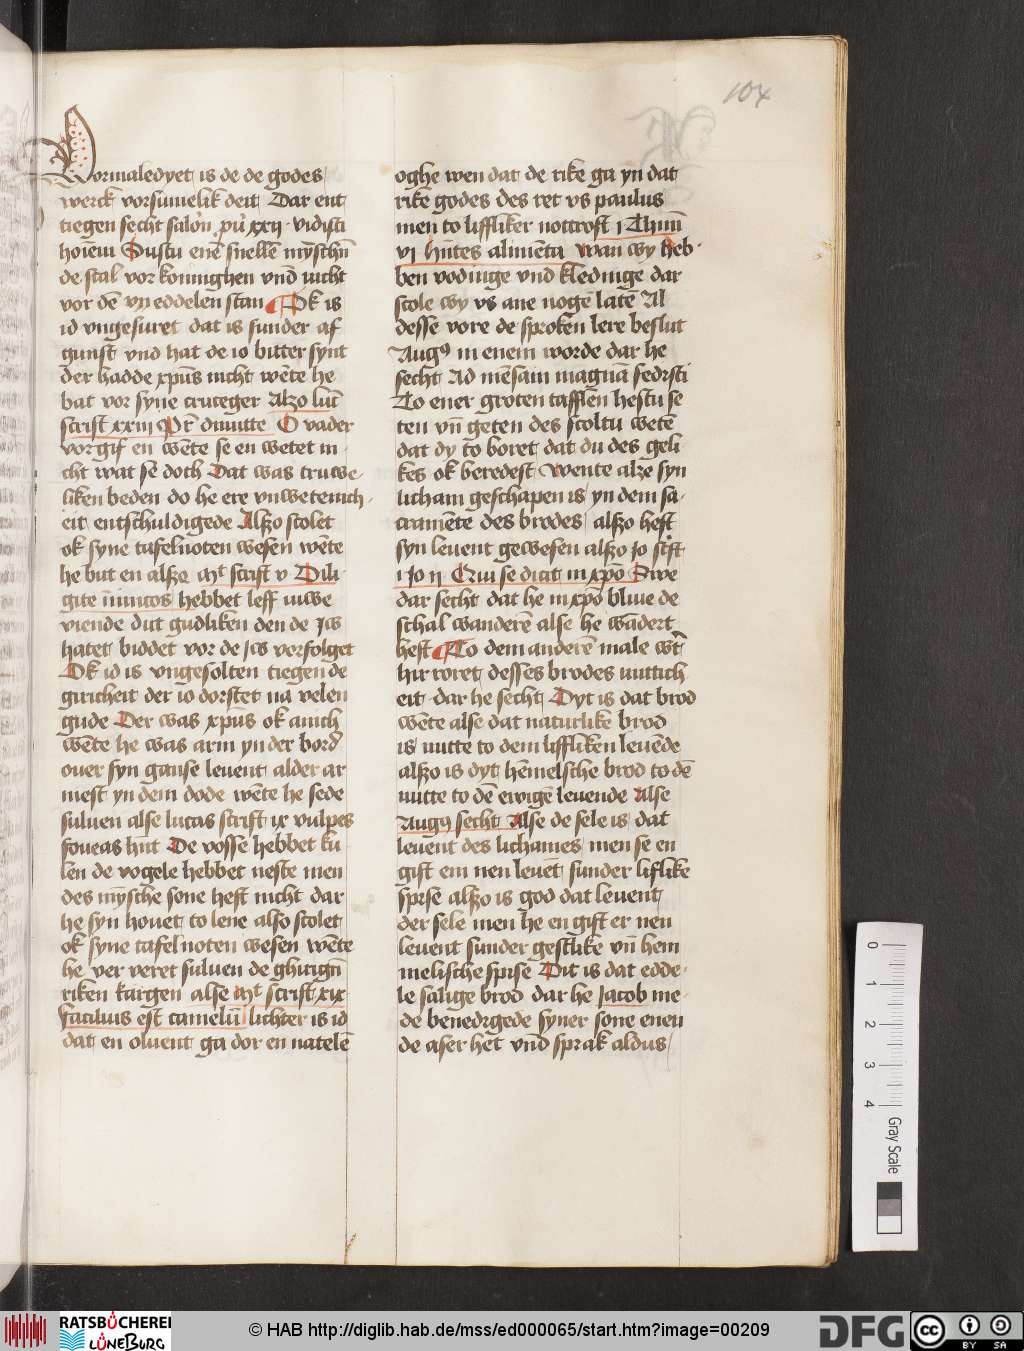 104
Vormaledyet is de de godes
werck vorsumelik deit Dar ent
tiegen secht salon pu xxij vidisti
hoiem Sustu ene snellen mynschn
de stal vor konnighen vnd nicht
vor den vneddelen stan Ok is
id vngesuret dat is sunder af
gunst vnd hat de io bitter synt
der hadde xpus nicht wente he
bat vor syne cruceger Alzo luc
scrift xxiij Pr dimitte O vader
vorgif en wente se en wetet ni
cht wat se doch Dat was truwe
liken beden do he ere vnwetenich
eit entschuldigede Alszo scolet
ok syne tafelnoten wesen wente
he but en alszo mt scrift v Dili
gite inimicos hebbet leff iuwe
viende dut gudliken den de jw
hatet biddet vor de jw vorfolget
Ok id is vngesolten tiegen de
giricheit der io dorstet na velen
gude Der was xpus ok anich
wente he was arm yn der bord
ouer syn ganse leuent alder ar
mest yn dem dode wente he sede
suluen alse lucas scrift ix vulpes
foueas hnt De vosse hebbet ku
len de vogele hebbet neste men
des mynsche sone heft nicht dar
he syn houet to lene also scolet
ok syne tafelnoten wesen wente
he ver veret suluen de ghirign
riken kargen alse mt scrift xix
Facilius est camelum lichter is id
dat en oluent ga dor en natelen
oghe wen dat de rike ga yn dat
rike godes des ret vs paulus
men to liffliker nottroft j Thim
vj hntes alimenta wan wy heb
ben vodinge vnd kledinge dar
scole wy vs ane nogen laten Al
desse vore de sproken lere beslut
Augus in enem worde dar he
secht Ad mensam magnam sedisti
To ener groten tafflen hestu se
ten vn geten des scoltu weten
dat dy to boret dat du des geli
kes ok beredest Wente alze syn
licham geschapen is yn dem sa
cramente des brodes alszo heft
syn leuent gewesen alszo jo scrift
i jo ij Qui se dicit in xpo Swe
dar secht dat he in xpo bliue de
schal wanderen alse he wandert
heft To dem anderen male wert
hir roret desses brodes nuttich
eit dar he secht Dyt is dat brod
wente alse dat naturlike brod
is nutte to dem liffliken leuende
alszo is dyt hemelsche brod to den
nutte to den ewigen leuende Alse
Augus secht Alse de sele is dat
leuent des lichames men se en
gift em nen leuent sunder liflike
spise alszo is god dat leuent
der sele men he en gift er nen
leuent sunder gestlike vn hem
melische spise Dit is dat edde
le salige brod dar he Jacob me
de benedigede syner sone enen
de aser het vnd sprak aldus
0
1
2
3
4
Gray Scale
RATSBÜCHEREI
LÜNEBURG
© HAB http://diglib.hab.de/mss/ed000065/start.htm?image=00209
DFG
cc
BY
SA